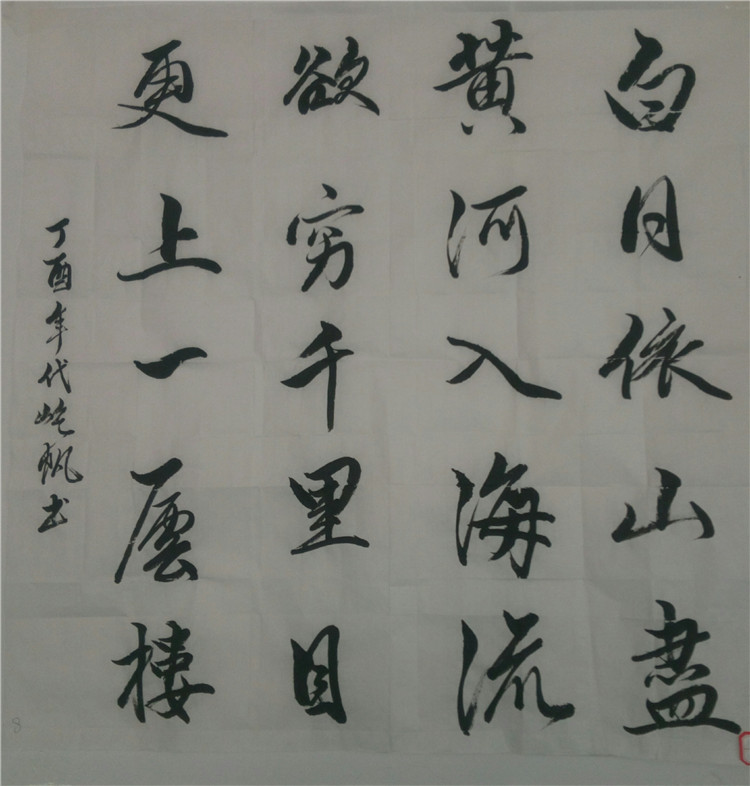 白日依山盡
黄河入海流
欲穷千里目
更上一層樓
丁酉年代屹帆书